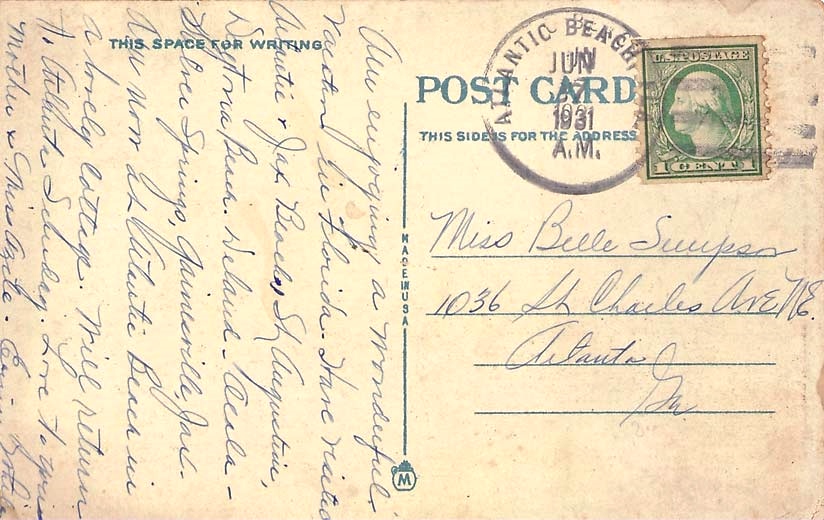 THIS SPACE FOR WRITING
Am enjoying a wonderful
vacation in Florida. Have visited
Atlantic & Jax Beaches, St Augustine,
Daytona Beach. Deland - Ocala -
Silver Springs, Gainesville, Jax.
Am now at Atlantic Beach in
a lovely cottage. Will return
to Atlanta Saturday. Love to you
Mother & Miss
POST CARD
THIS SIDE IS FOR THE ADDRESS
MADE IN USA
M
ATLANTIC BEACH
JUN
1931
A.M.
U.S. POSTAGE
1 CENT 1
Miss Belle Simpson
1036 St Charles Ave N.E.
Atlanta
Ga